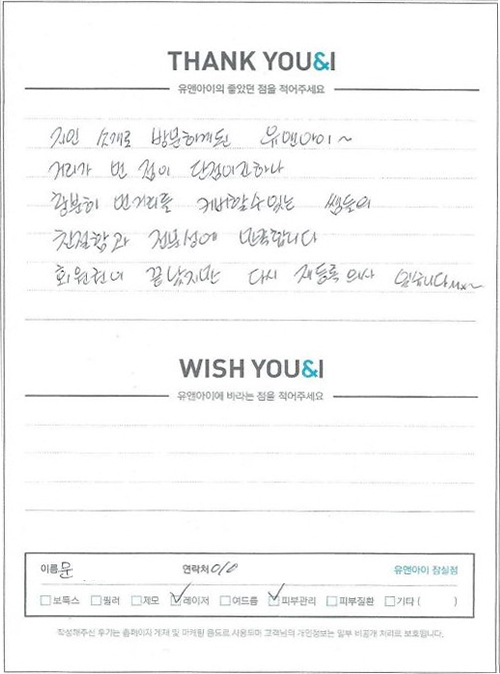 THANK YOU&I
유앤아이의 좋았던 점을 적어주세요
지인 소개로 방문하게된 유앤아이~
거리가 먼 점이 단점이긴하나
충분히 먼거리를 커버할수있는 쌤들의
친절함과 전문성에 만족합니다
회원권이 끝났지만 다시 재등록의사
WISH YOU&I
유앤아이에 바라는 점을 적어주세요
이름 문 연락처 010 유앤아이 잠실점
보톡스 필러 제모 레이저 여드름 피부관리 피부질환 기타 ( )
작성해주신 후기는 홈페이지 게재 및 마케팅 용도로 사용되며 고객님의 개인정보는 일부 비공개 처리로 보호됩니다.